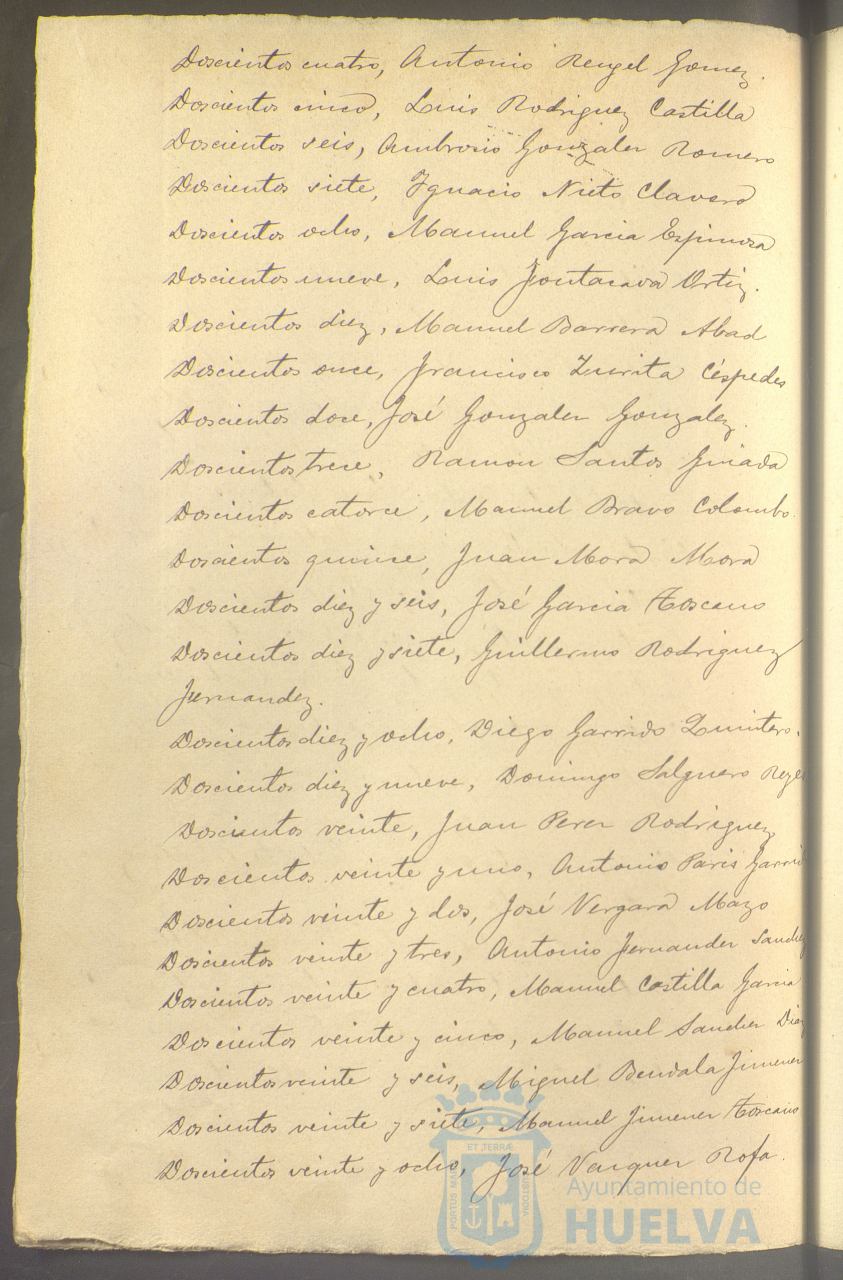 Doscientos cuatro, Antonio Rengel Gomez.
Doscientos cinco, Luis Rodriguez Castilla
Doscientos seis, Ambrosio Gonzalez Romero
Doscientos siete, Ignacio Nieto Clavero
Doscientos ocho, Manuel Garcia Espinosa
Doscientos nueve, Luis Ortiz.
Doscientos diez, Manuel Barrera Abad
Doscientos once, Francisco Zurita Céspedes
Doscientos doce, José Gonzalez Gonzalez.
Doscientos trece, Ramon Santos
Doscientos catorce, Manuel Bravo Colombo.
Doscientos quince, Juan Mora Mora
Doscientos diez y seis, José Garcia Toscano
Doscientos diez y siete, Guillermo Rodriguez
Fernandez.
Doscientos diez y ocho, Diego Garrido Quintero.
Doscientos diez y nueve, Domingo Salguero Reyes
Doscientos veinte, Juan Perez Rodriguez
Doscientos veinte y uno, Antonio Paris Garrid
Doscientos veinte y dos, José Vergara Mazo
Doscientos veinte y tres, Antonio Fernandez Sanchez
Doscientos veinte y cuatro, Manuel Castilla Garcia
Doscientos veinte y cinco, Manuel Sanchez Diaz
Doscientos veinte y seis, Miguel Bendala Jimenez
Doscientos veinte y siete, Manuel Jimenez Toscano
Doscientos veinte y ocho, José Vazquez Rofa.
ET TERRÆ
PORTUS MA
CUSTODIA
Ayuntamiento de
HUELVA